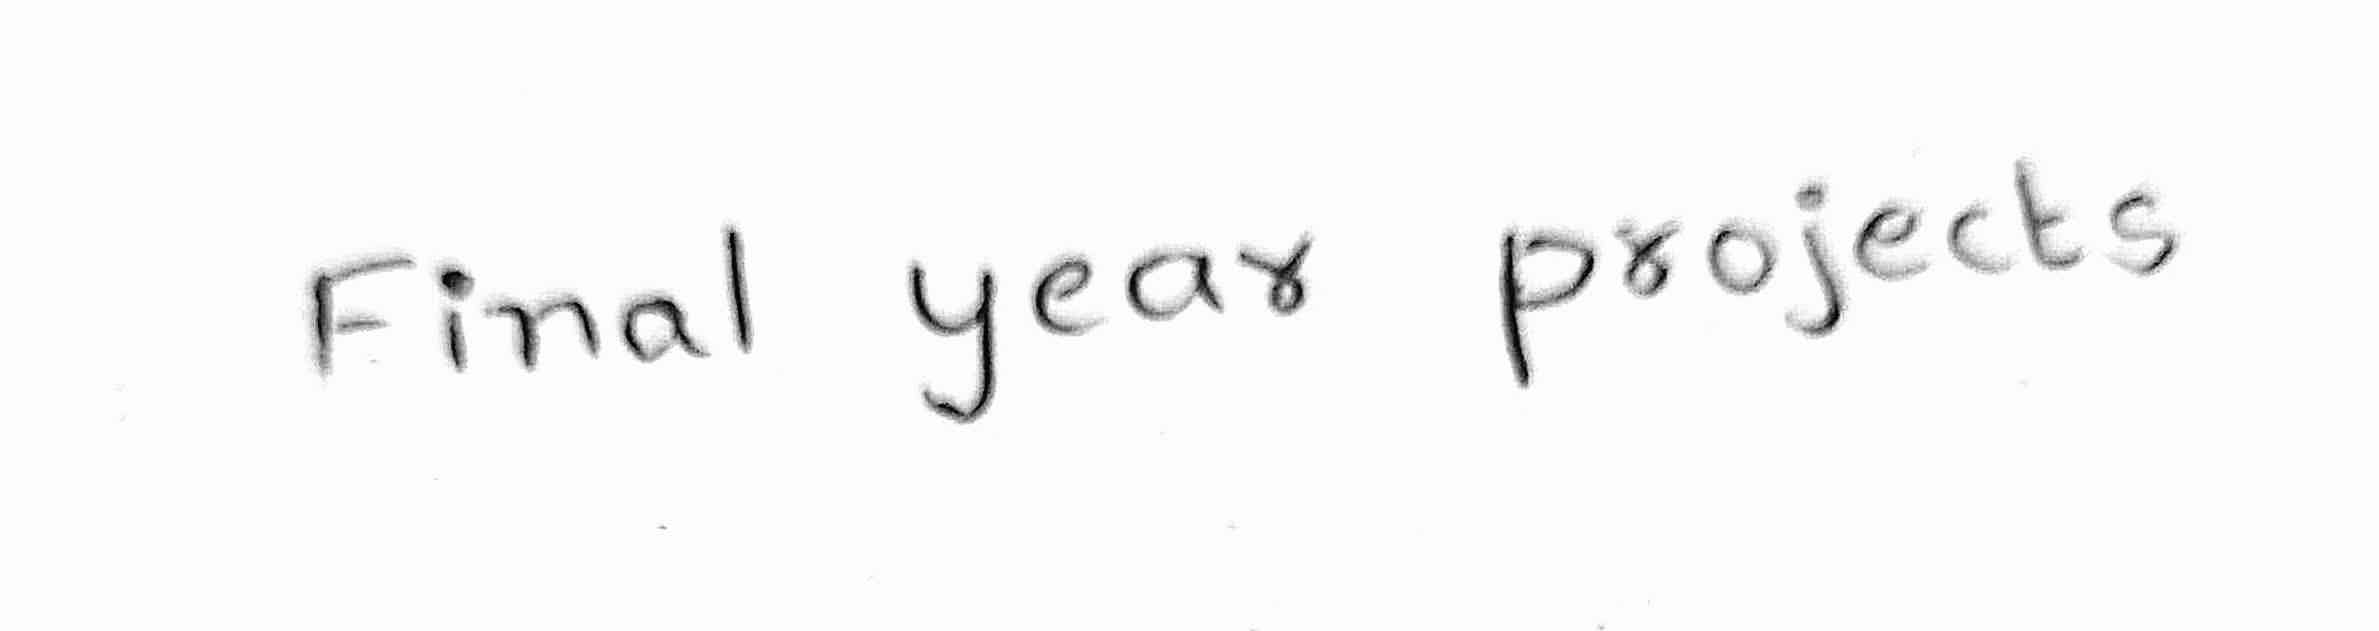 Final year projects